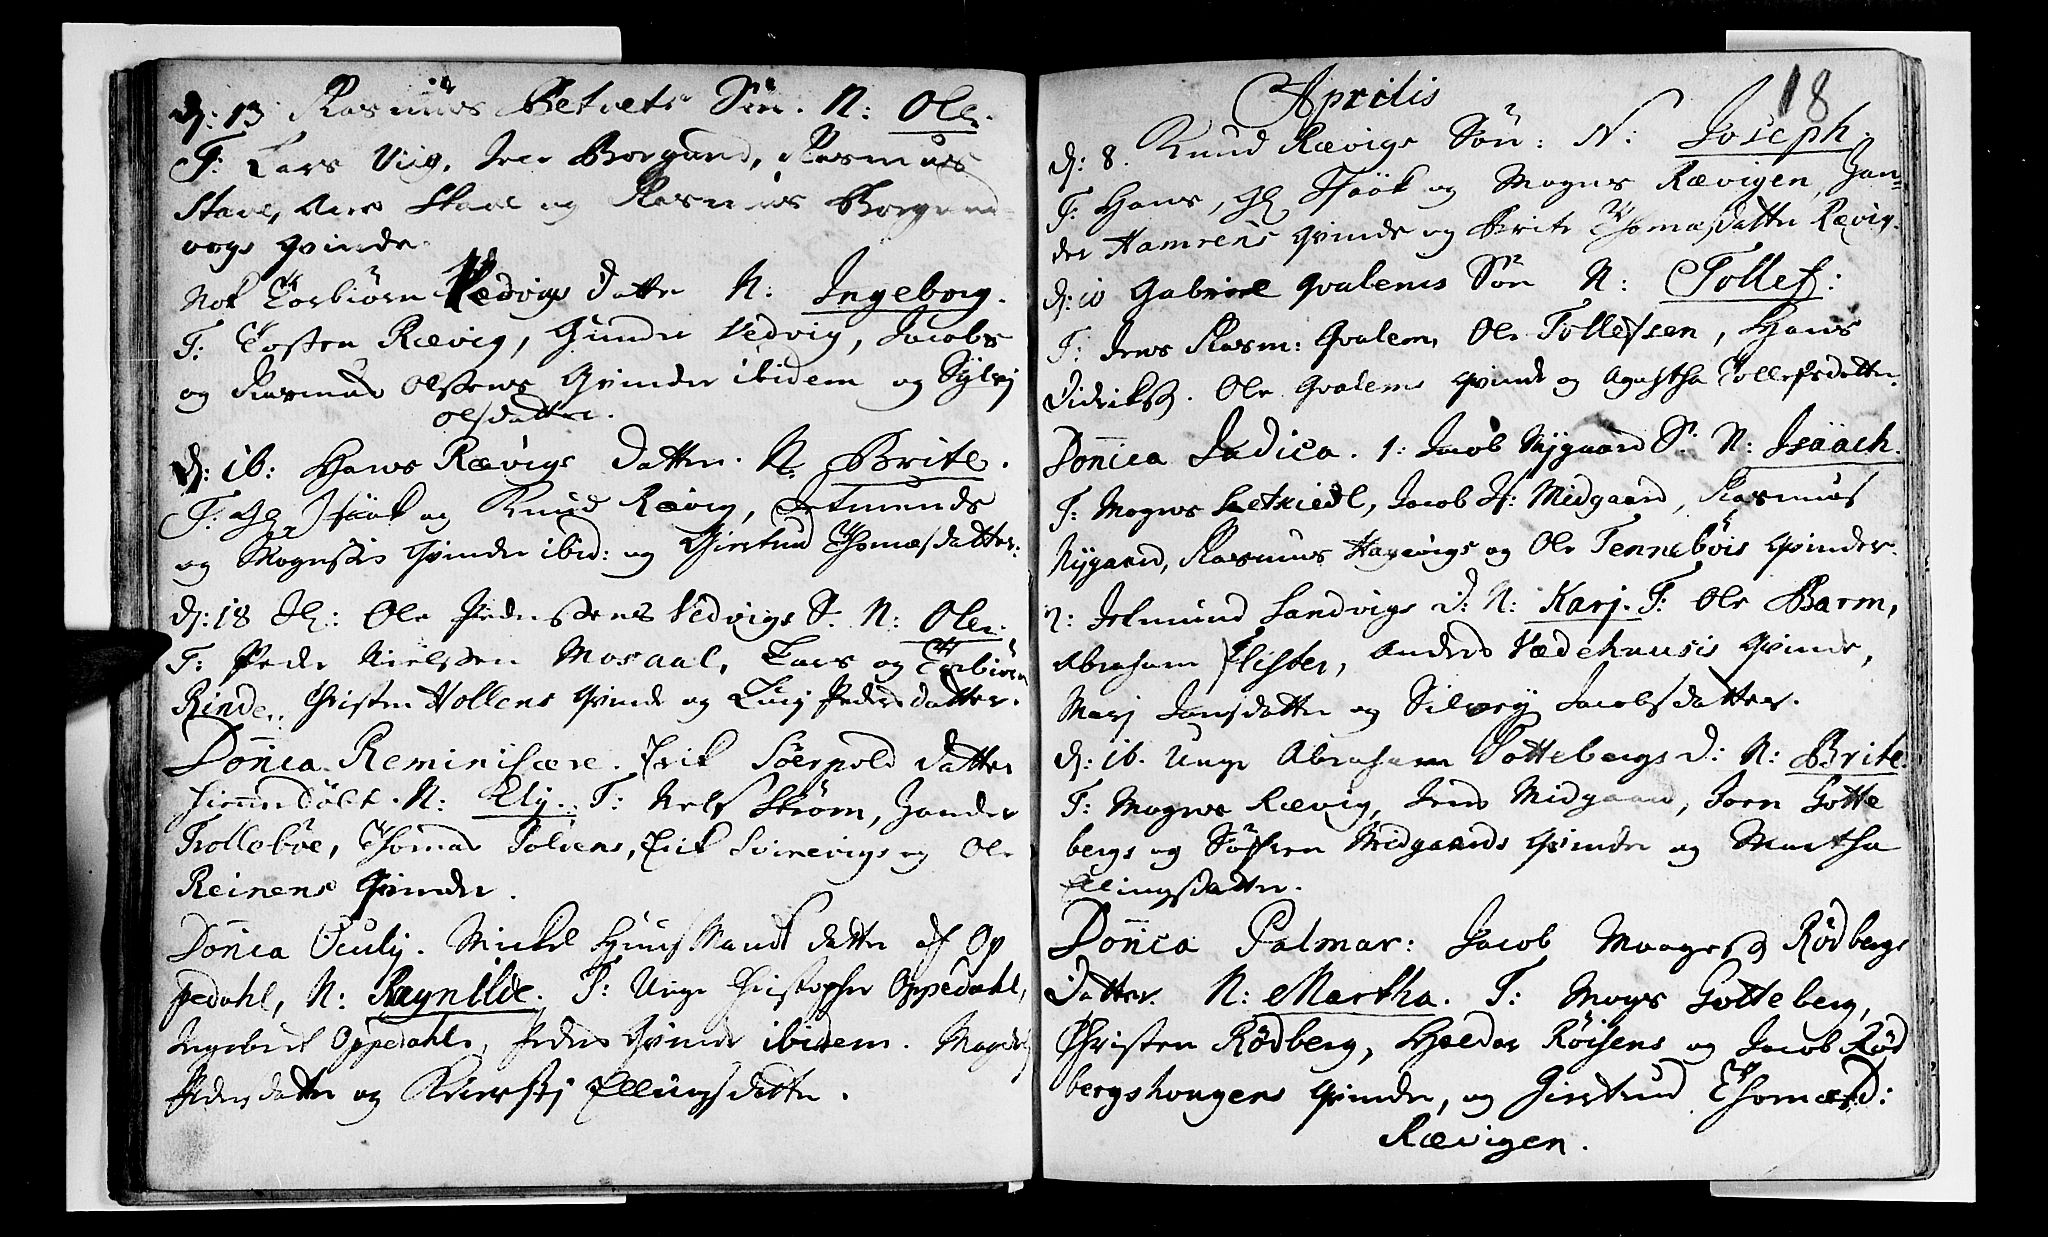 d: 13 Rasmus Betvets Søn. N: Ole.
F: Lars Viig, Iver Borgund, Rasmus
Stave, Stave og Rasmus Borgund
vogs qvinde.
Nok Torbiørn Vedvigs datter N: Ingeborg.
F: Tosten Rævig, Gunder Vedvig, Jacobs
og Rasmus Olssens qvinder ibidem og Sylvj
olsdatter.
d: 16: Hans Rævigs datter. N. Brite.
F: Gl. Høøk og Knud Rævig, Jetmunds
og Mognssis qvinder ibid: og Giertrud Thomæsdatter:
d: 18 Ole Pederssens Vedvigs S. N: Ole.
F: Peder Nielssen Mosaal, Lars og Torbiørn
Rinde, Christen Hollens qvinde og Lucj Pedersdatter.
Doñica Reminiscere. Erik Søerpold datter
hiemmedøbt. N: Ely. F: Nels Strøm, Zander
Trollebøe, Thomas Folvens, Erik Svinevigs og Ole
Reinens qvinder.
Doñica Oculj. Mickel datter af Op
pedahl, N: Ragnilde. F: Unge Christopher Oppedahl,
Ingebret Oppedahls, Peders qvinde ibidem. Magdel
Pedersdatter og Kierstj Ellingsdatter.
18
Aprilis
d: 8. Knud Rævigs Søn: N: Joseph.
F: Hans, Gl Høøk og Mogns Rævigen, Zan-
der Hamrens qvinde og Brite Thomasdatter Rævig.
d: 10 Gabriel qvalens Søn N: Tollef:
F: Jens Rasm: qvalen, Ole Tollefsen, Hans
Didriks. Ole qvalens qvinde og Agatha Tollefsdatter.
Doñica Judica. 1: Jacob Nygaard S. N: Isäach.
F: Mogns Letkiedl, Jacob H: Midgaard, Rasmus
Nygaard, Rasmus Havevigs og Ole Tennebøis qvinder.
2: Jetmund Sandvigs D: N: Karj. F: Ole Barm,
Abraham Flister, Anders Vædehuusis qvinde,
Marj Jonsdatter og Silvey Jacobsdatter.
d: 16. Unge Abraham Gottebergs D: N: Brite.
F: Mogns Rævig, Jens Midgaard, Jorn Gotte
bergs og Søfren Midgaards qvinder og Martha
Ellingsdatter.
Doñica Palmar: Jacob Mogness Rødbergs
Datter. N: Martha. F: Mogns Gotteberg,
Christen Rødberg, Haldor Røisens og Jacob Rød
bergshougens qvinder, og Giertrud Thomæ D:
Rævigen.